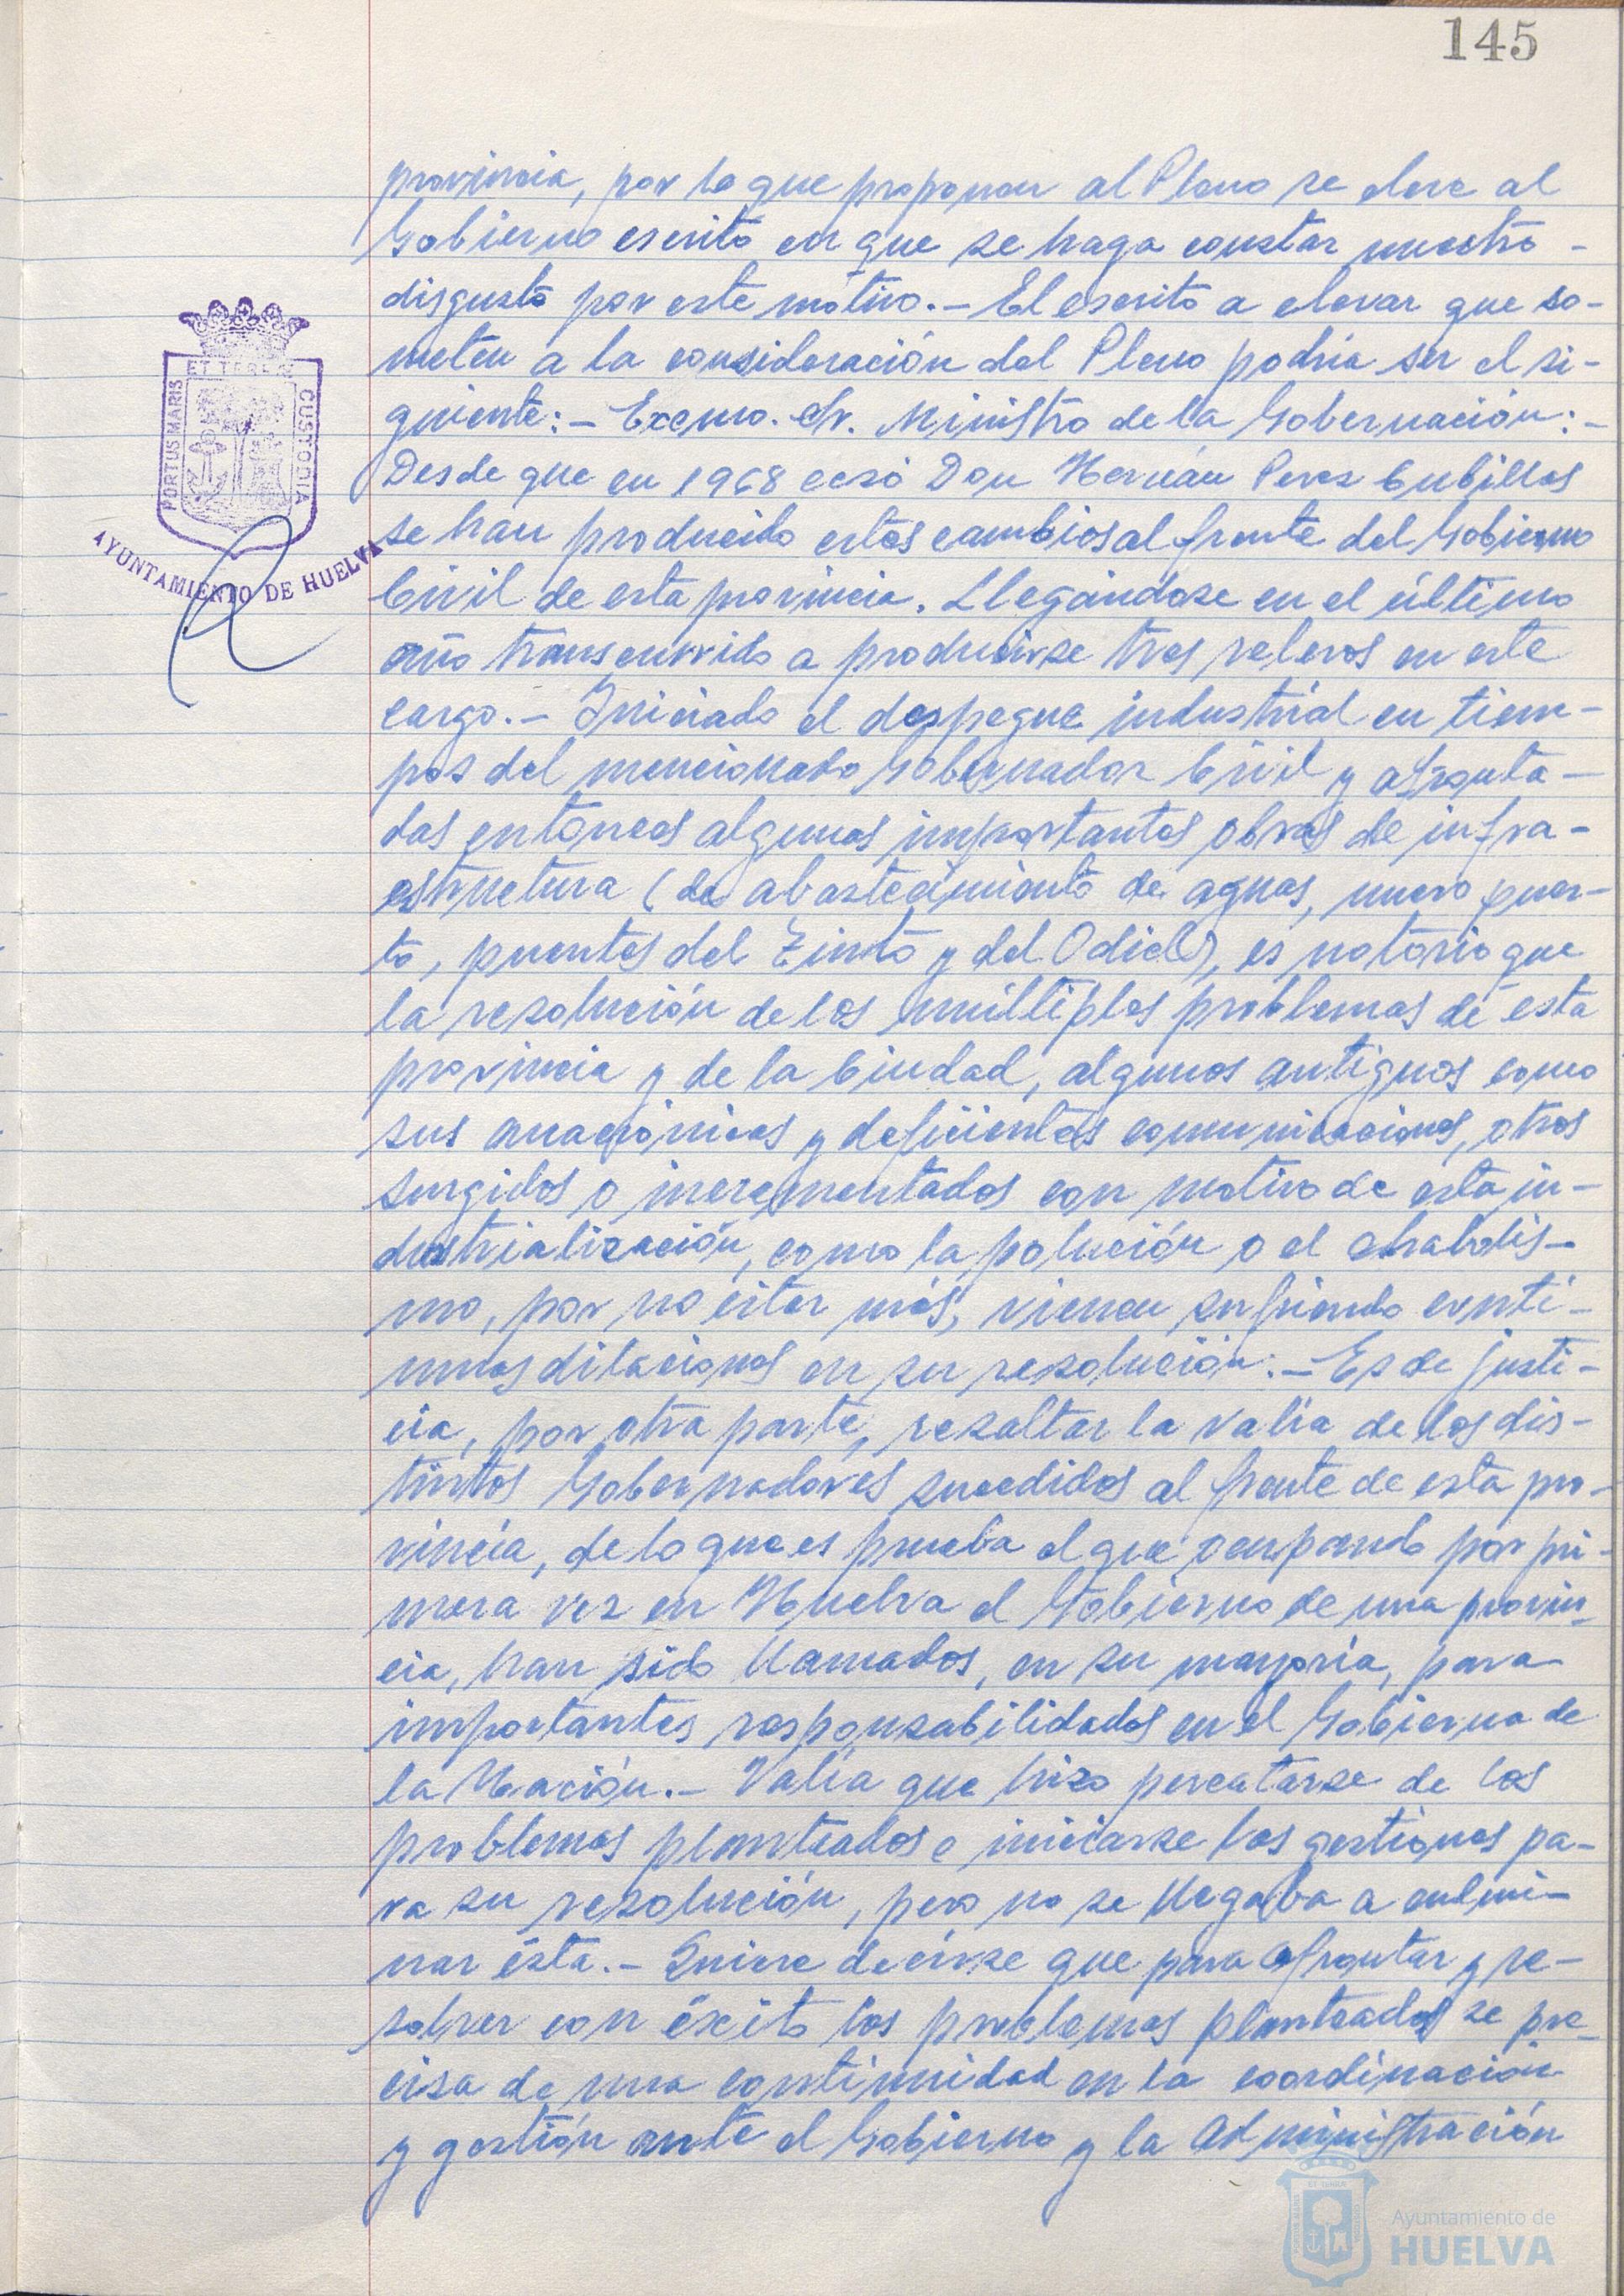 145
provincia, por lo que proponen al Pleno se eleve al
Gobierno escrito en que se haga constar nuestro -
disgusto por este motivo.- El escrito a elevar que so-
meten a la consideración del Pleno podría ser el si-
guiente:- Excmo. Sr. Ministro de la Gobernación:-
Desde que en 1968 cesó Don Hernán Perez Cubillas
se han producido estos cambios al frente del Gobierno
Civil de esta provincia. Llegándose en el último
año transcurrido a producirse tres relevos en este
cargo.- Iniciado el despegue industrial en tiem-
pos del mencionado Gobernador Civil y afronta-
das entonces algunas importantes obras de infra-
estructura (de abastecimiento de aguas, nuevo puer-
to, puentes del Tinto y del Odiel), es notorio que
la resolución de los múltiples problemas de esta
provincia y de la Ciudad, algunos antiguos como
sus anacrónicas y deficientes comunicaciones, otros
surgidos o incrementados con motivo de esta in-
dustrialización, como la polución o el chabolis-
mo, por no citar más, vienen sufriendo conti-
nuas dilaciones en su resolución.- Es de justi-
cia, por otra parte, resaltar la valía de los dis-
tintos Gobernadores sucedidos al frente de esta pro-
vincia, de lo que es prueba el que ocupando por pri-
mera vez en Huelva el Gobierno de una provin-
cia, han sido llamados, en su mayoría, para
importantes responsabilidades en el Gobierno de
la Nación.- Valía que hizo percatarse de los
problemas planteados e iniciarse las gestiones pa-
ra su resolución, pero no se llegaba a culmi-
nar ésta.- Quiere decirse que para afrontar y re-
solver con éxito los problemas planteados se pre-
cisa de una continuidad en la coordinación
y gestión ante el Gobierno y la Administración
PORTUS MARIS ET TERRAE CUSTODIA
AYUNTAMIENTO DE HUELVA
Ayuntamiento de
HUELVA